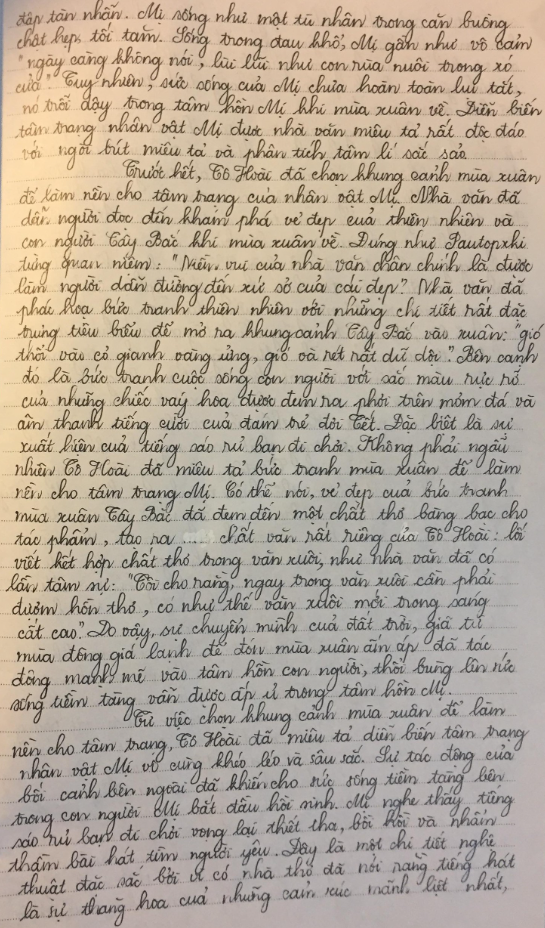 đập tàn nhẫn. Mị sống như một tù nhân trong căn buồng
chật hẹp, tối tăm. Sống trong đau khổ, Mị gần như vô cảm
"ngày càng không nói, lùi lũi như con rùa nuôi trong xó
cửa." Tuy nhiên, sức sống của Mị chưa hoàn toàn lụi tắt,
nó trỗi dậy trong tâm hồn Mị khi mùa xuân về. Diễn biến
tâm trạng nhân vật Mị được nhà văn miêu tả rất độc đáo
với ngòi bút miêu tả và phân tích tâm lí sắc sảo.
Trước hết, Tô Hoài đã chọn khung cảnh mùa xuân
để làm nền cho tâm trạng của nhân vật Mị. Nhà văn đã
dẫn người đọc đến khám phá vẻ đẹp của thiên nhiên và
con người Tây Bắc khi mùa xuân về. Đúng như Pautopxki
từng quan niệm: "Niềm vui của nhà văn chân chính là được
làm người dẫn đường đến xứ sở của cái đẹp." Nhà văn đã
phác họa bức tranh thiên nhiên với những chi tiết rất đặc
trưng tiêu biểu để mở ra khung cảnh Tây Bắc vào xuân: "gió
thổi vào cỏ gianh vàng ửng, gió và rét rất dữ dội". Bên cạnh
đó là bức tranh cuộc sống con người với sắc màu rực rỡ
của những chiếc váy hoa được đem ra phơi trên mỏm đá và
âm thanh tiếng cười của đám trẻ đợi Tết. Đặc biệt là sự
xuất hiện của tiếng sáo rủ bạn đi chơi. Không phải ngẫu
nhiên Tô Hoài đã miêu tả bức tranh mùa xuân để làm
nền cho tâm trạng Mị. Có thể nói, vẻ đẹp của bức tranh
mùa xuân Tây Bắc đã đem đến một chất thơ bàng bạc cho
tác phẩm, tạo ra ..... chất văn rất riêng của Tô Hoài: lối
viết kết hợp chất thơ trong văn xuôi, như nhà văn đã có
lần tâm sự: "Tôi cho rằng, ngay trong văn xuôi cần phải
đượm hồn thơ, có như thế văn xuôi mới trong sáng
cất cao." Do vậy, sự chuyển mình của đất trời, giã từ
mùa đông giá lạnh để đón mùa xuân ấm áp đã tác
động mạnh mẽ vào tâm hồn con người, thổi bùng lên sức
sống tiềm tàng vẫn được ấp ủ trong tâm hồn Mị.
Từ việc chọn khung cảnh mùa xuân để làm
nền cho tâm trạng, Tô Hoài đã miêu tả diễn biến tâm trạng
nhân vật Mị vô cùng khéo léo và sâu sắc. Sự tác động của
bối cảnh bên ngoài đã khiến cho sức sống tiềm tàng bên
trong con người Mị bắt đầu hồi sinh. Mị nghe thấy tiếng
sáo rủ bạn đi chơi vọng lại thiết tha, bồi hồi và nhẩm
thầm bài hát tìm người yêu. Đây là một chi tiết nghệ
thuật đặc sắc bởi vì có nhà thơ đã nói rằng tiếng hát
là sự thăng hoa của những cảm xúc mãnh liệt nhất,